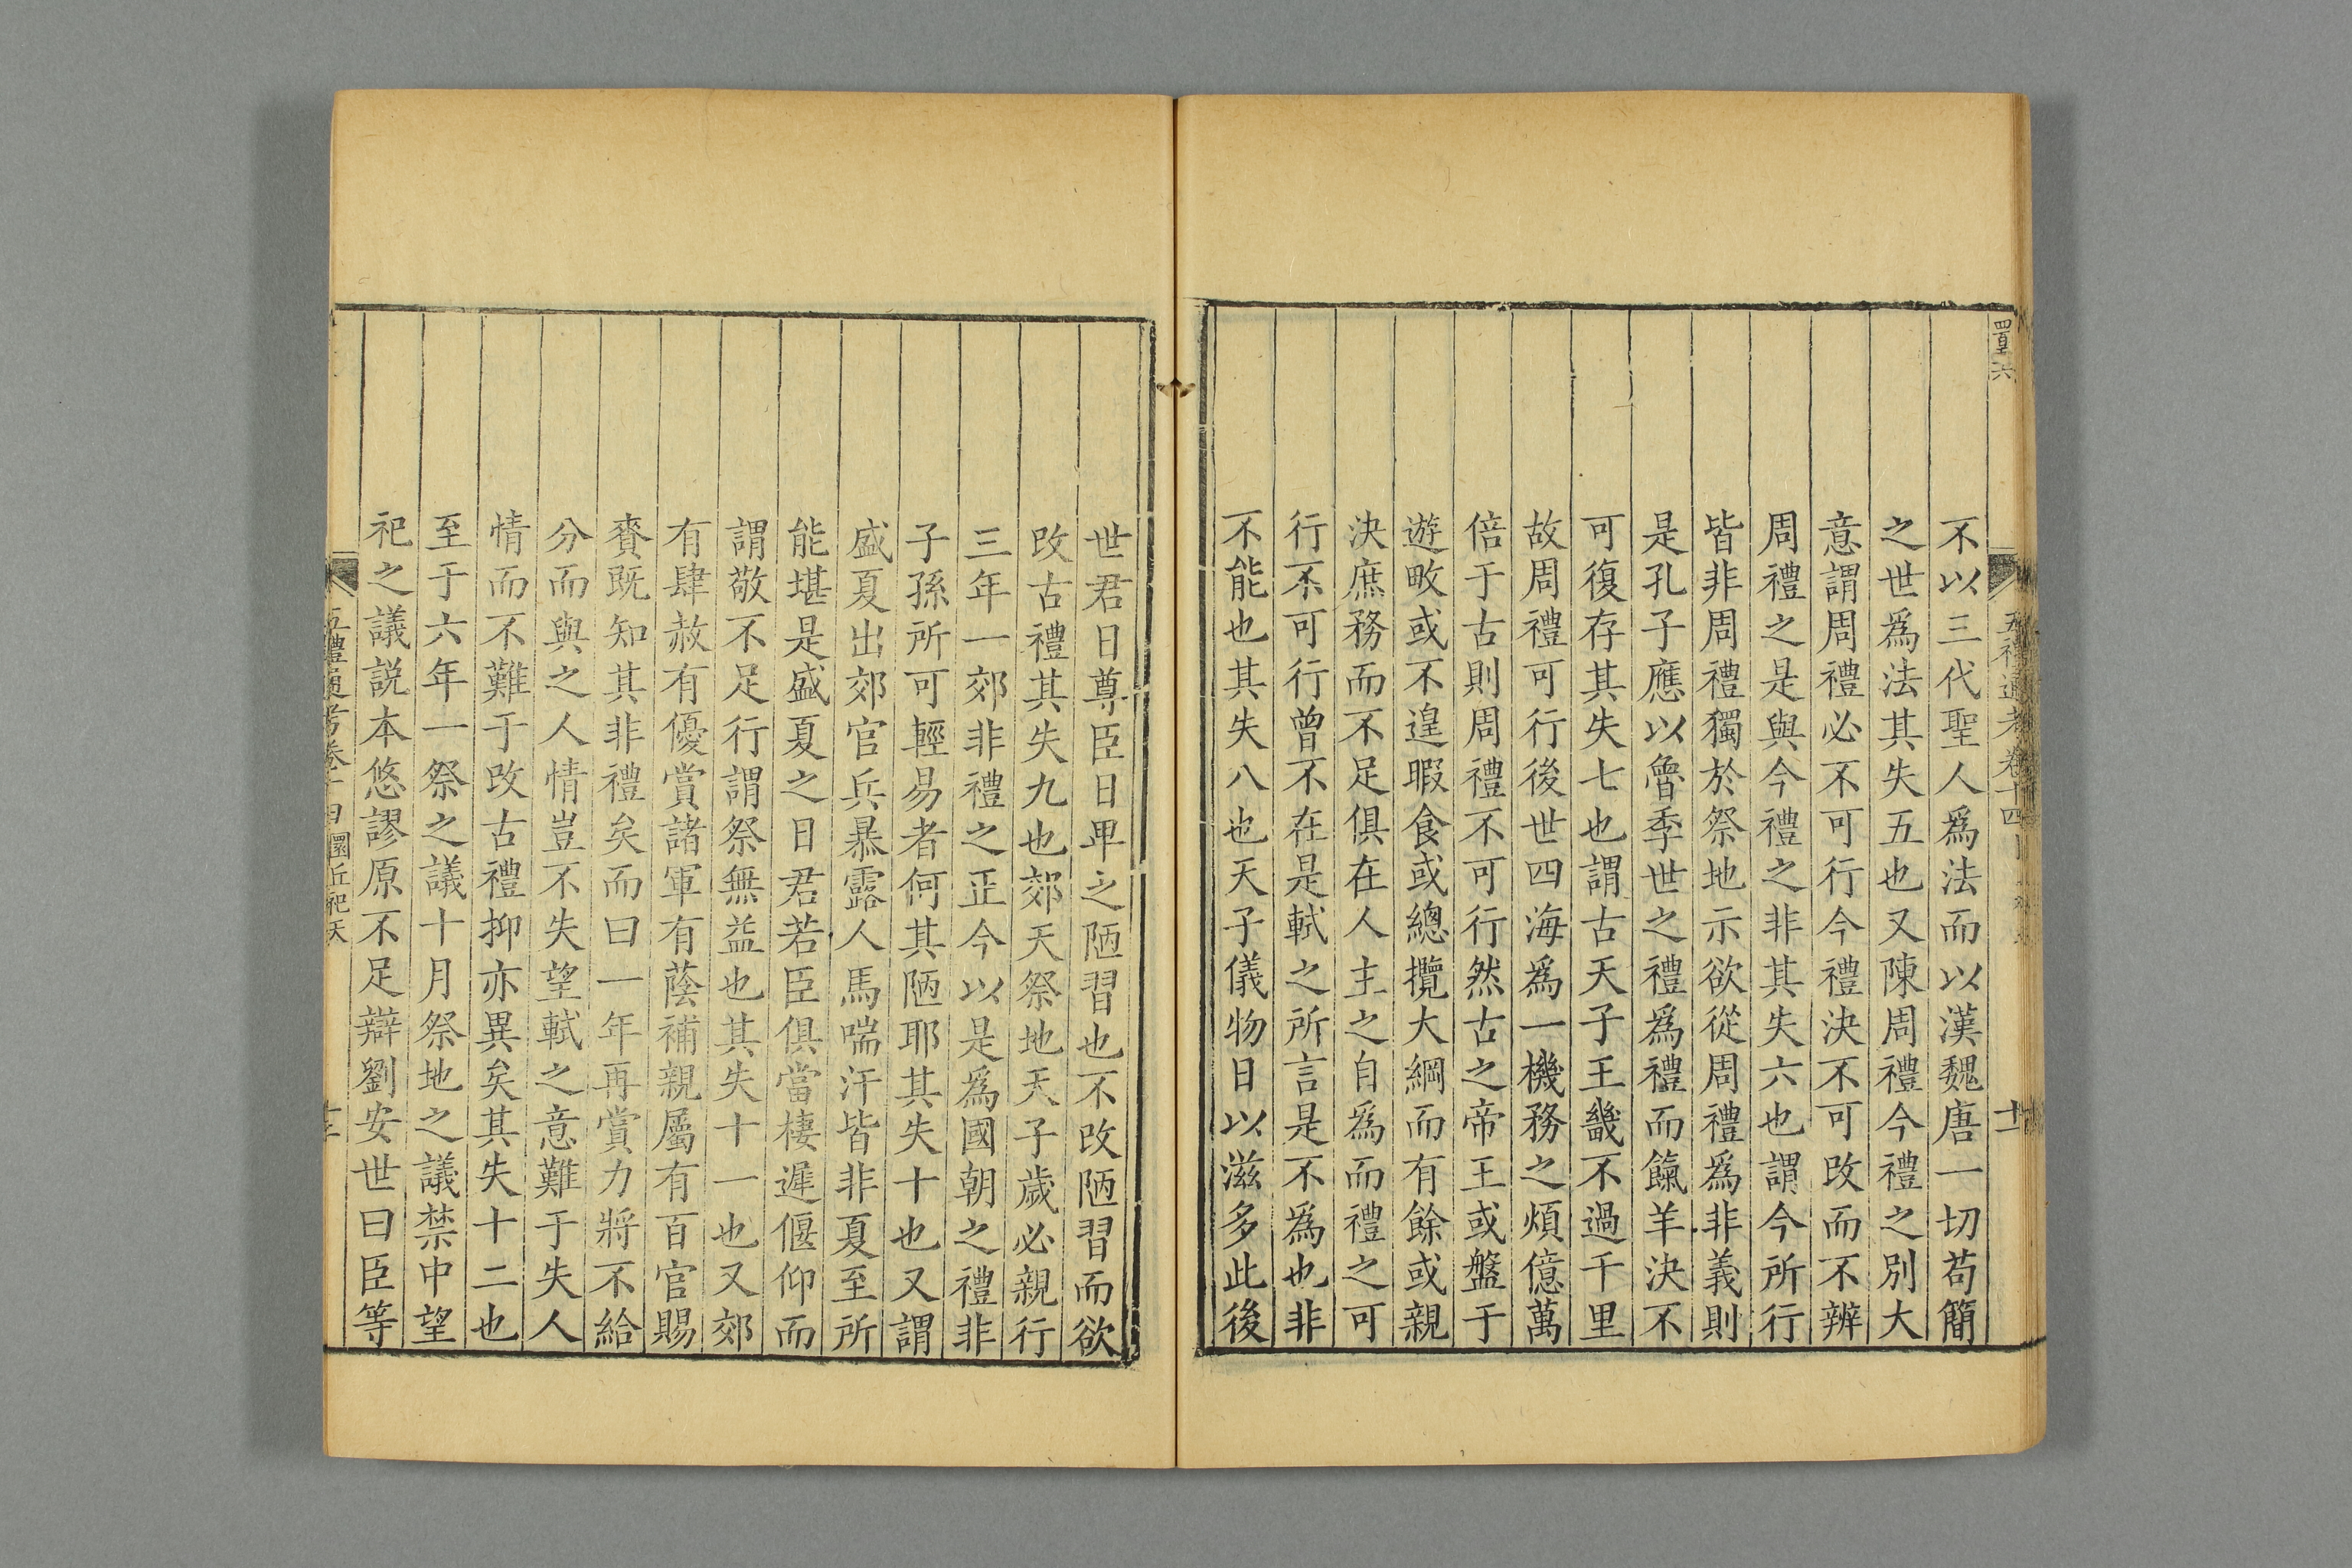 不以三代聖人爲法而以漢魏唐一切苟簡
之世爲法其失五也又陳周禮今禮之別大
意謂周禮必不可行今禮決不可改而不辨
周禮之是與今禮之非其失六也謂今所行
皆非周禮獨於祭地示欲從周禮爲非義則
是孔子應以魯季世之禮爲禮而餼羊決不
可復存其失七也謂古天子王畿不過千里
故周禮可行後世四海爲一機務之煩億萬
倍于古則周禮不可行然古之帝王或盤于
遊畋或不遑暇食或總攬大綱而有餘或親
決庶務而不足俱在人主之自爲而禮之可
行不可行曾不在是軾之所言是不爲也非
不能也其失八也天子儀物日以滋多此後
世君日尊臣日卑之陋習也不改陋習而欲
改古禮其失九也郊天祭地天子歲必親行
三年一郊非禮之正今以是爲國朝之禮非
子孫所可輕易者何其陋耶其失十也又謂
盛夏出郊官兵暴露人馬喘汗皆非夏至所
能堪是盛夏之日君若臣俱當棲遲偃仰而
謂敬不足行謂祭無益也其失十一也又郊
有肆赦有優賞諸軍有蔭補親屬有百官賜
賚既知其非禮矣而曰一年再賞力將不給
分而與之人情豈不失望軾之意難于失人
情而不難于改古禮抑亦異矣其失十二也
至于六年一祭之議十月祭地之議禁中望
祀之議説本悠謬原不足辯劉安世曰臣等
五禮通考卷十四 圜丘祀天